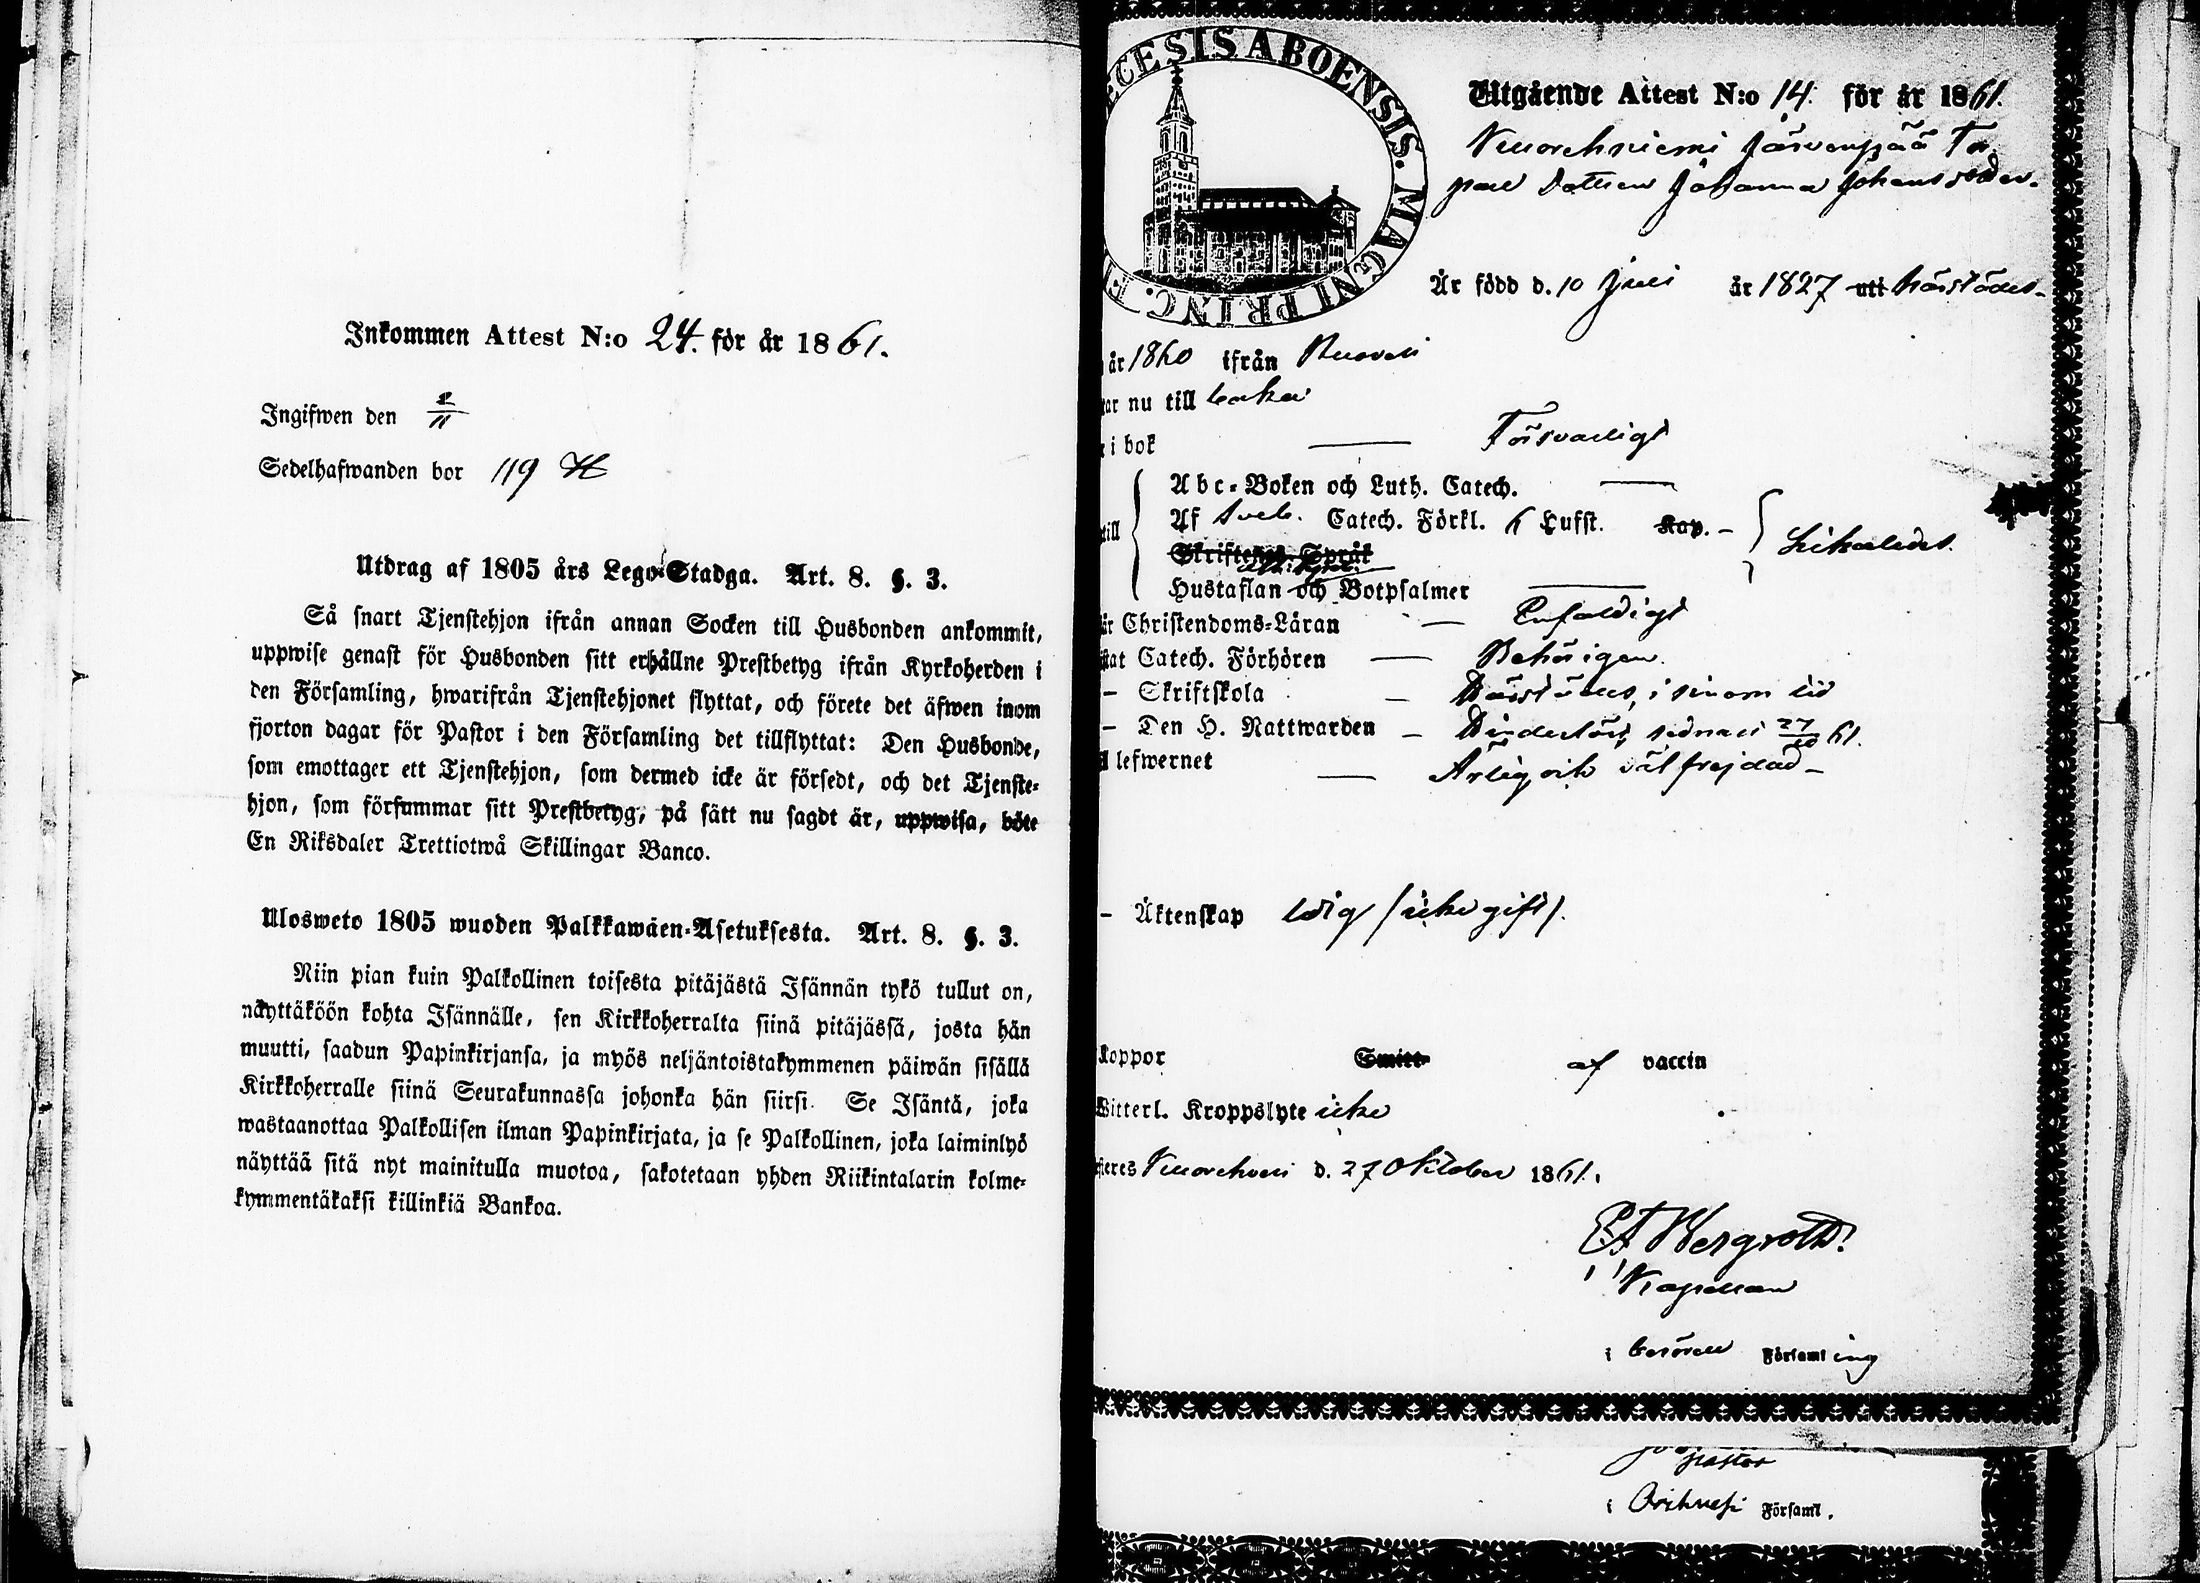 Inkommen Attest N:o 24. för år 1861.
Ingifwen den 2/11
Sedelhafwanden bor 119 H
Utdrag af 1805 års Lego-Stadga. Art. 8. §. 3.
Så snart Tjenstehjon ifrån annan Socken till Husbonden ankommit,
uppwise genast för Husbonden sitt erhållne Prestbetyg ifrån Kyrkoherden i
den Församling, hwarifrån Tjenstehjonet flyttat, och förete det äfwen inom
fjorton dagar för Pastor i den Församling det tillflyttat: Den Husbonde,
som emottager ett Tjenstehjon, som dermed icke är försedt, och det Tjenste-
hjon, som försummar sitt Prestbetyg, på sätt nu sagdt är, uppwisa, böte
En Riksdaler Trettiotwå Skillingar Banco.
Ulosweto 1805 wuoden Palkkawäen-Asetuksesta. Art. 8. §. 3.
Niin pian kuin Palkollinen toisesta pitäjästä Isännän tykö tullut on,
näyttäköön kohta Isännälle, sen Kirkkoherralta siinä pitäjässä, josta hän
muutti, saadun Papinkirjansa, ja myös neljäntoistakymmenen päiwän sisällä
Kirkkoherralle siinä Seurakunnassa johonka hän siirsi. Se Isäntä, joka
wastaanottaa Palkollisen ilman Papinkirjata, ja se Palkollinen, joka laiminlyö
näyttää sitä nyt mainitulla muotoa, sakotetaan yhden Riikintalarin kolme-
kymmentäkaksi killinkiä Bankoa.
ECESIS ABOENSIS. MAGNI PRINC. F
Utgående Attest N:o 14. för år 1861.
Järvenpää Tor
pare Dottren Johanna Johansdotter.
Är född d. 10 Juli år 1827 utt härstädes
år 1860 ifrån Ruovesi
ar nu till
i bok Försvarligt
Abc-Boken och Luth. Catech.
till Af Sveb. Catech. Förkl. 6 Hufst. Kap. - Likaledes.
Skriftenes Språk
Hustaflan och Botpsalmer
är Christendoms-Läran Enfaldigt
stat Catech. Förhören Behörigen.
- Skriftskola Härstädes, i sinom tid
- Den H. Nattwarden - sednast 27/10 61.
l lefwernet Ärlig och väl frejdad -
- Äktenskap ledig /icke gift/.
koppor Smitt af vaccin
Witterl. Kroppslyte icke
steres Kuorehvesi d. 27 Oktober 1861.
Bergroth
Kapellan
i berörde Församling
pastor
i Orihvesi Församl.